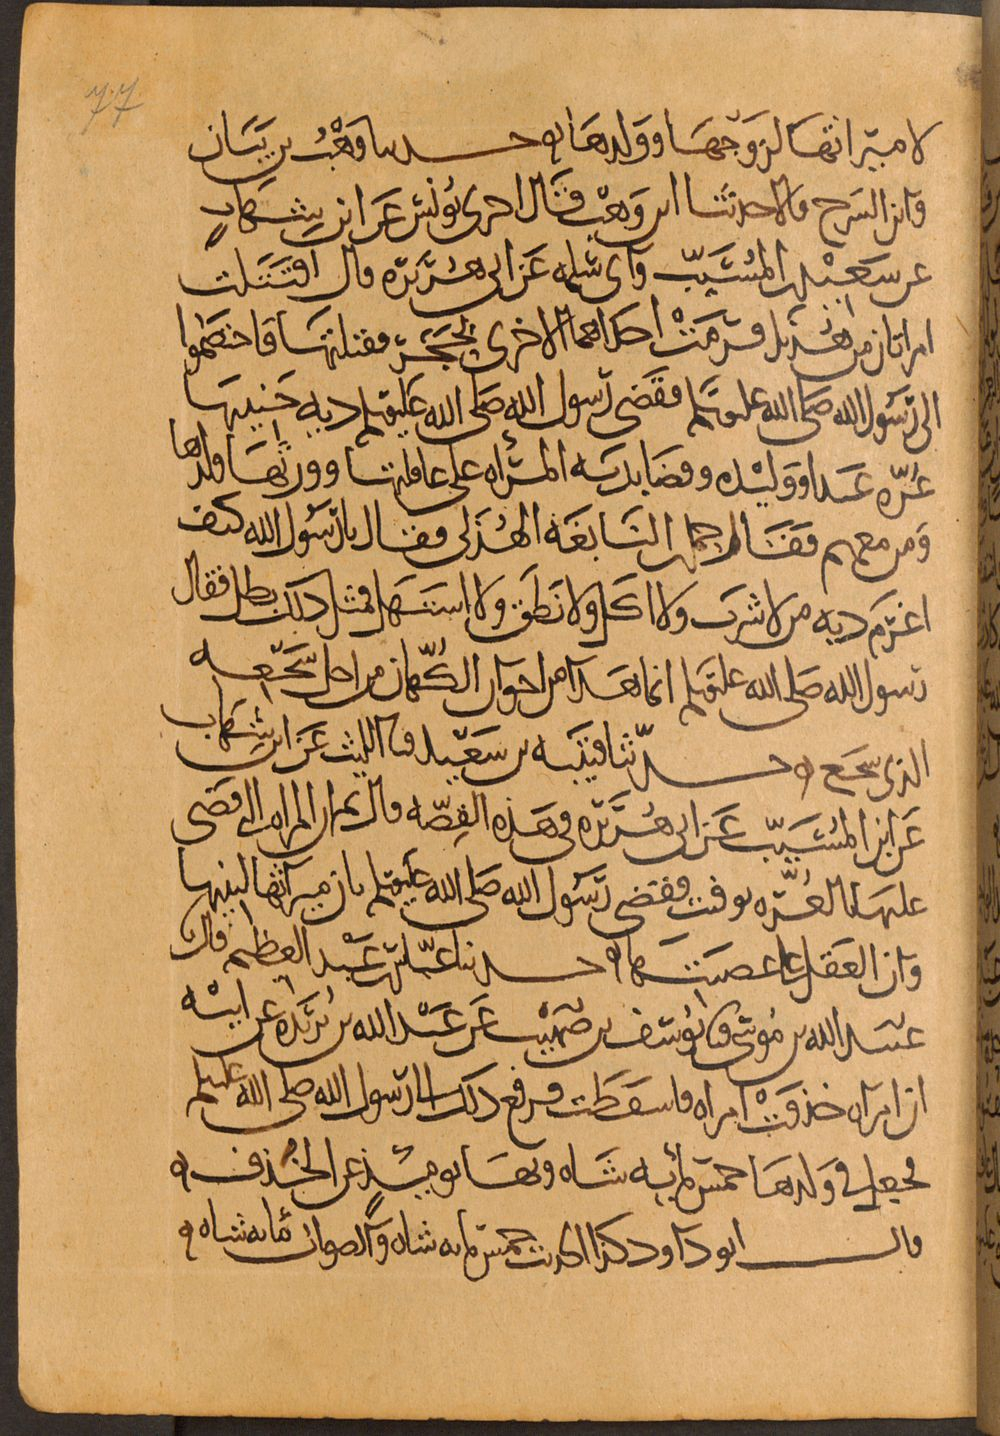 77
لا ميراثها لزوجها وولدها ه حدثنا وهب بن بيان
وابن السرح قالا حدثنا ابن وهب قال اخبرني يونس عن ابن شهاب
عن سعيد بن المسيب وابي سلمه عن ابي هريره قال اقتتلت
امراتان من هذيل فرمت احداهما الاخرى بحجر فقتلتها فاختصموا
الى رسول الله صلى الله عليه وسلم فقضى رسول الله صلى الله عليه وسلم ديه جنينها
غره عبد او وليده وقضا بديه المرأه على عاقلتها وورثها ولدها
ومن معهم فقال حمل بن النابغه الهذلي فقال يا رسول الله كيف
اغرم ديه من لا شرب ولا اكل ولا نطق ولا استهل فمثل ذلك يطل فقال
رسول الله صلى الله عليه وسلم انما هذا من اخوان الكهان من اجل سجعه
الذي سجع ه حدثنا قتيبه بن سعيد نا الليث عن ابن شهاب
عن ابن المسيب عن ابي هريره في هذه القصه قال ثم ان المراه التي قضى
عليها بالغره توفيت فقضى رسول الله صلى الله عليه وسلم بان ميراثها لبنيها
وان العقل على عصبتها ه حدثنا عباس بن عبد العظيم قال نا
عبيد الله بن موسى نا يوسف بن صهيب عن عبد الله بن بريده عن ابيه
ان امراه خذفت امراه فاسقطت فرفع ذلك الى رسول الله صلى الله عليه وسلم
فجعل في ولدها خمس مأيه شاه ونها يوميذ عن الخذف ه
قال ابو داود كذا الحديث خمس مايه شاه والصواب مايه شاه ه